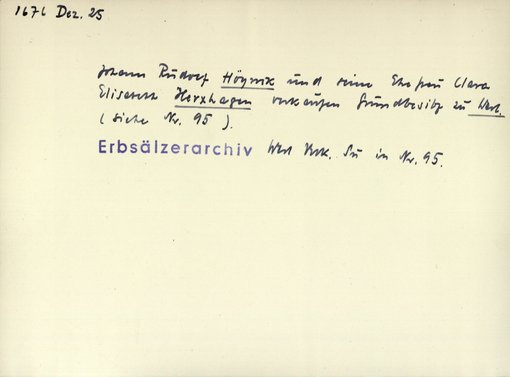 1676 Dez. 25
Johann Rudolf Höynck und seine Ehefrau Clara
Elisabeth Herxhagen verkaufen Grundbesitz zu Werl.
(siehe Nr. 95).
Erbsälzerarchiv Werl Urk. in Nr. 95.